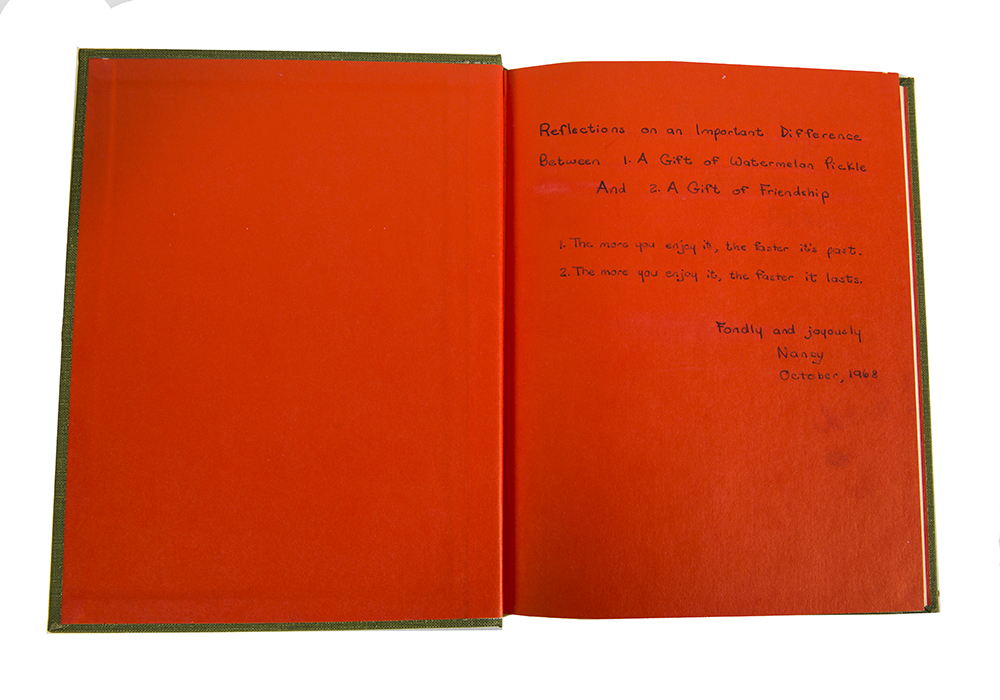 Reflections on an Important Difference
Between 1. A Gift of Watermelon Pickle
And 2. A Gift of Friendship
1. The more you enjoy it, the faster it's past.
2. The more you enjoy it, the faster it lasts.
Fondly and joyously
Nancy
October, 1968